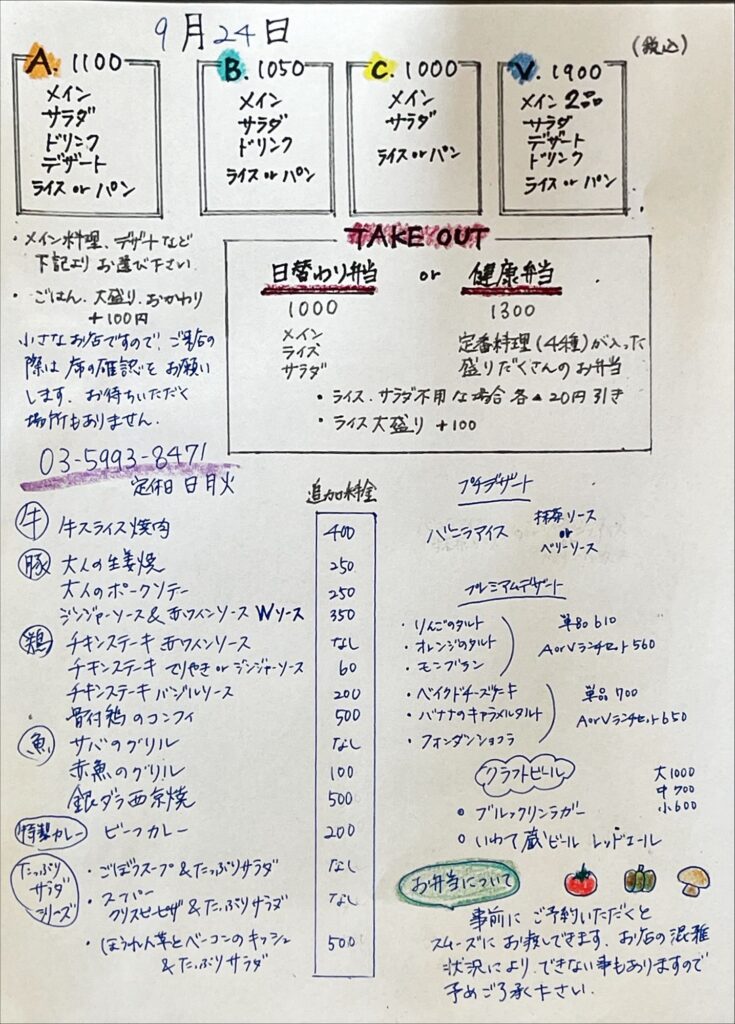 9月24日
(税込)
A. 1100
メイン
サラダ
ドリンク
デザート
ライス or パン
B. 1050
メイン
サラダ
ドリンク
ライス or パン
C. 1000
メイン
サラダ
ライス or パン
V. 1900
メイン 2品
サラダ
デザート
ドリンク
ライス or パン
・メイン料理、デザートなど
下記よりお選び下さい
・ごはん、大盛り、おかわり
+100円
小さなお店ですので、ご来店の
際は席の確認をお願い
します、お待ちいただく
場所もありません。
03-5993-8471
定休日 日月火
TAKE OUT
日替わり弁当 or 健康弁当
1000
メイン
ライス
サラダ
1300
定番料理(44種)が入った
盛りだくさんのお弁当
・ライス、サラダ不用な場合 各▲20円引き
・ライス大盛り +100
追加料金
牛 牛スライス焼肉 400
豚 大人の生姜焼 250
大人のポークソテー 250
ジンジャーソース&赤ワインソース Wソース 350
鶏 チキンステーキ 赤ワインソース なし
チキンステーキ てりやき or ジンジャーソース 60
チキンステーキ バジルソース 200
骨付鶏のコンフィ 500
魚 サバのグリル なし
赤魚のグリル 100
銀ダラ西京焼 500
特製カレー ビーフカレー 200
たっぷり
サラダ
シリーズ
・ごぼうスープ&たっぷりサラダ なし
・スーパー
クリスピーピザ&たっぷりサラダ なし
・ほうれん草とベーコンのキッシュ
&たっぷりサラダ 500
プチデザート
バニラアイス
抹茶ソース
or
ベリーソース
プレミアムデザート
・りんごのタルト
・オレンジのタルト
・モンブラン
単品 610
AorVランチセット 560
・ベイクドチーズケーキ
・バナナのキャラメルタルト
・フォンダンショコラ
単品 700
AorVランチセット 650
クラフトビール
大1000
中700
小600
ブルックリンラガー
いわて蔵ビール レッドエール
お弁当について
事前にご予約いただくと
スムーズにお渡しできます、お店の混雑
状況により、できない事もありますので
予めご了承ください。